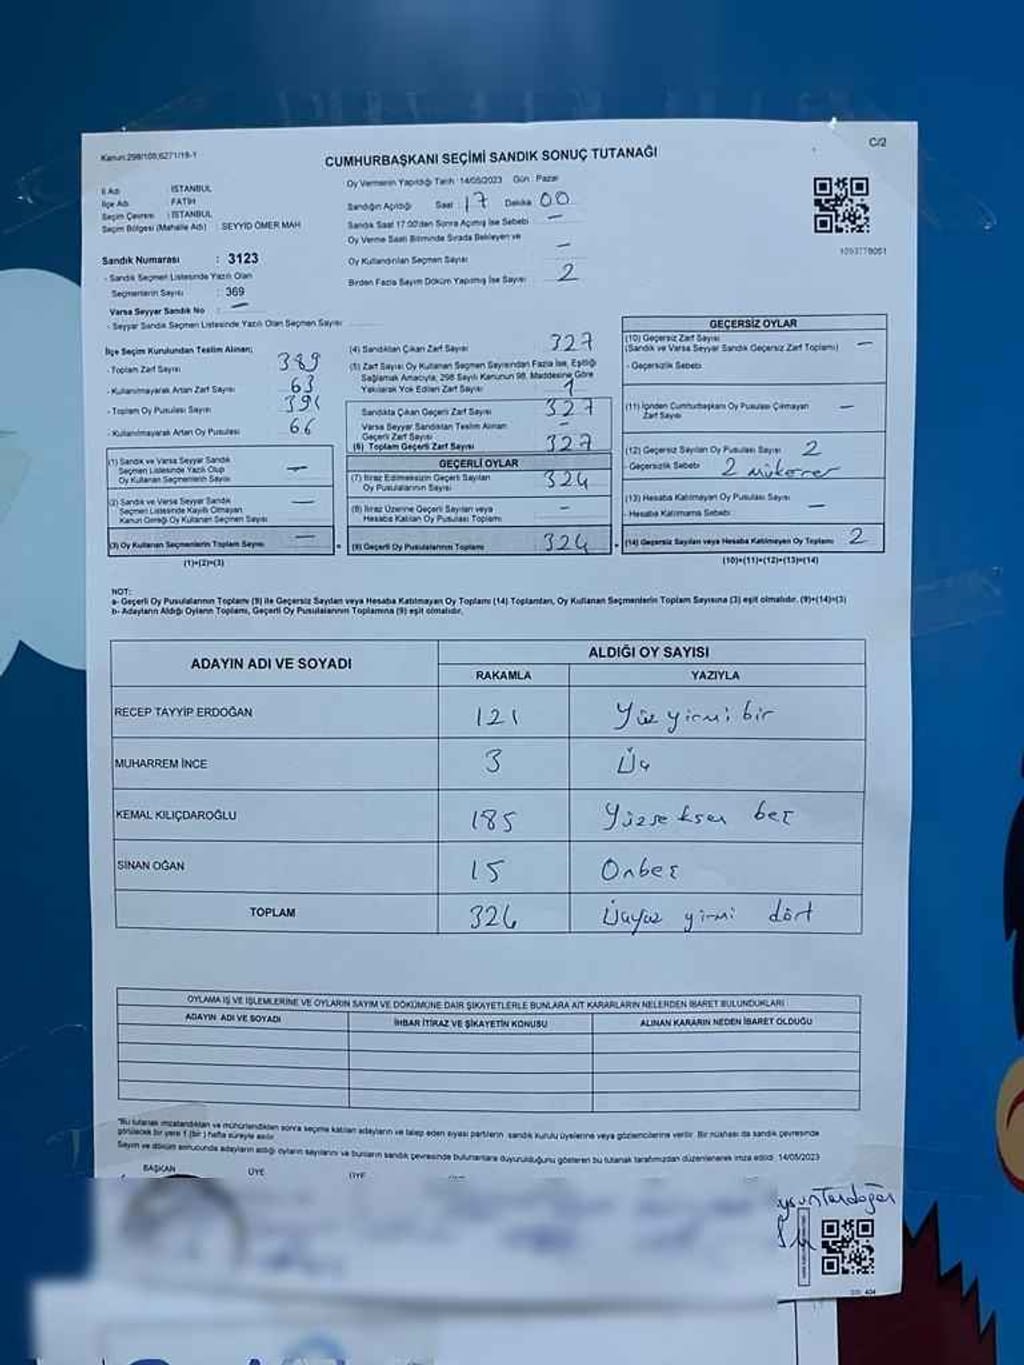 Kanun:298/105;6271/19-1
C/2
CUMHURBAŞKANI SEÇİMİ SANDIK SONUÇ TUTANAĞI
İl Adı : İSTANBUL
İlçe Adı : FATİH
Seçim Çevresi : İSTANBUL
Seçim Bölgesi (Mahalle Adı) : SEYYID ÖMER MAH
Sandık Numarası : 3123
- Sandık Seçmen Listesinde Yazılı Olan
Seçmenlerin Sayısı : 369
Varsa Seyyar Sandık No : —
- Seyyar Sandık Seçmen Listesinde Yazılı Olan Seçmen Sayısı
Oy Vermenin Yapıldığı Tarih : 14/05/2023 Gün : Pazar
Sandığın Açıldığı Saat : 17 Dakika 00
Sandık Saat 17:00'den Sonra Açılmış İse Sebebi —
Oy Verme Saati Bitiminde Sırada Bekleyen ve
Oy Kullandırılan Seçmen Sayısı —
Birden Fazla Sayım Döküm Yapılmış İse Sayısı 2
İlçe Seçim Kurulundan Teslim Alınan;
- Toplam Zarf Sayısı 389
- Kullanılmayarak Artan Zarf Sayısı 63
- Toplam Oy Pusulası Sayısı 391
- Kullanılmayarak Artan Oy Pusulası 66
(1) Sandık ve Varsa Seyyar Sandık
Seçmen Listesinde Yazılı Olup
Oy Kullanan Seçmenlerin Sayısı —
(2) Sandık ve Varsa Seyyar Sandık
Seçmen Listesinde Kayıtlı Olmayan
Kanun Gereği Oy Kullanan Seçmen Sayısı —
(3) Oy Kullanan Seçmenlerin Toplam Sayısı —
(1)+(2)=(3)
(4) Sandıktan Çıkan Zarf Sayısı 327
(5) Zarf Sayısı Oy Kullanan Seçmen Sayısından Fazla İse, Eşitliği
Sağlamak Amacıyla, 298 Sayılı Kanunun 98. Maddesine Göre
Yakılarak Yok Edilen Zarf Sayısı 1
Sandıkta Çıkan Geçerli Zarf Sayısı 327
Varsa Seyyar Sandıktan Teslim Alınan
Geçerli Zarf Sayısı —
(6) Toplam Geçerli Zarf Sayısı 327
GEÇERLİ OYLAR
(7) İtiraz Edilmeksizin Geçerli Sayılan
Oy Pusulalarının Sayısı 324
(8) İtiraz Üzerine Geçerli Sayılan veya
Hesaba Katılan Oy Pusulası Toplamı —
(9) Geçerli Oy Pusulalarının Toplamı 324
GEÇERSİZ OYLAR
(10) Geçersiz Zarf Sayısı
(Sandık ve Varsa Seyyar Sandık Geçersiz Zarf Toplamı) —
- Geçersizlik Sebebi
(11) İçinden Cumhurbaşkanı Oy Pusulası Çıkmayan
Zarf Sayısı —
(12) Geçersiz Sayılan Oy Pusulası Sayısı 2
- Geçersizlik Sebebi 2 mükerrer
(13) Hesaba Katılmayan Oy Pusulası Sayısı —
- Hesaba Katılmama Sebebi
(14) Geçersiz Sayılan veya Hesaba Katılmayan Oy Toplamı 2
(10)+(11)+(12)+(13)=(14)
NOT:
a- Geçerli Oy Pusulalarının Toplamı (9) ile Geçersiz Sayılan veya Hesaba Katılmayan Oy Toplamı (14) Toplamları, Oy Kullanan Seçmenlerin Toplam Sayısına (3) eşit olmalıdır. (9)+(14)=(3)
b- Adayların Aldığı Oyların Toplamı, Geçerli Oy Pusulalarının Toplamına (9) eşit olmalıdır.
ADAYIN ADI VE SOYADI ALDIĞI OY SAYISI
RAKAMLA YAZIYLA
RECEP TAYYİP ERDOĞAN 121 Yüz yirmi bir
MUHARREM İNCE 3 Üç
KEMAL KILIÇDAROĞLU 185 Yüzseksen beş
SİNAN OĞAN 15 Onbeş
TOPLAM 324 Üçyüz yirmi dört
OYLAMA İŞ VE İŞLEMLERİNE VE OYLARIN SAYIM VE DÖKÜMÜNE DAİR ŞİKAYETLERLE BUNLARA AİT KARARLARIN NELERDEN İBARET BULUNDUKLARI
ADAYIN ADI VE SOYADI İHBAR İTİRAZ VE ŞİKAYETİN KONUSU ALINAN KARARIN NEDEN İBARET OLDUĞU
"Bu tutanak imzalandıktan ve mühürlendikten sonra seçime katılan adayların ve talep eden siyasi partilerin sandık kurulu üyelerine veya gözlemcilerine verilir. Bir nüshası da sandık çevresinde
görülecek bir yere 1 (bir) hafta süreyle asılır.
Sayım ve döküm sonucunda adayların aldığı oyların sayılarını ve bunların sandık çevresinde bulunanlara duyurulduğunu gösteren bu tutanak tarafımızdan düzenlenerek imza edildi. 14/05/2023
BAŞKAN ÜYE ÜYE